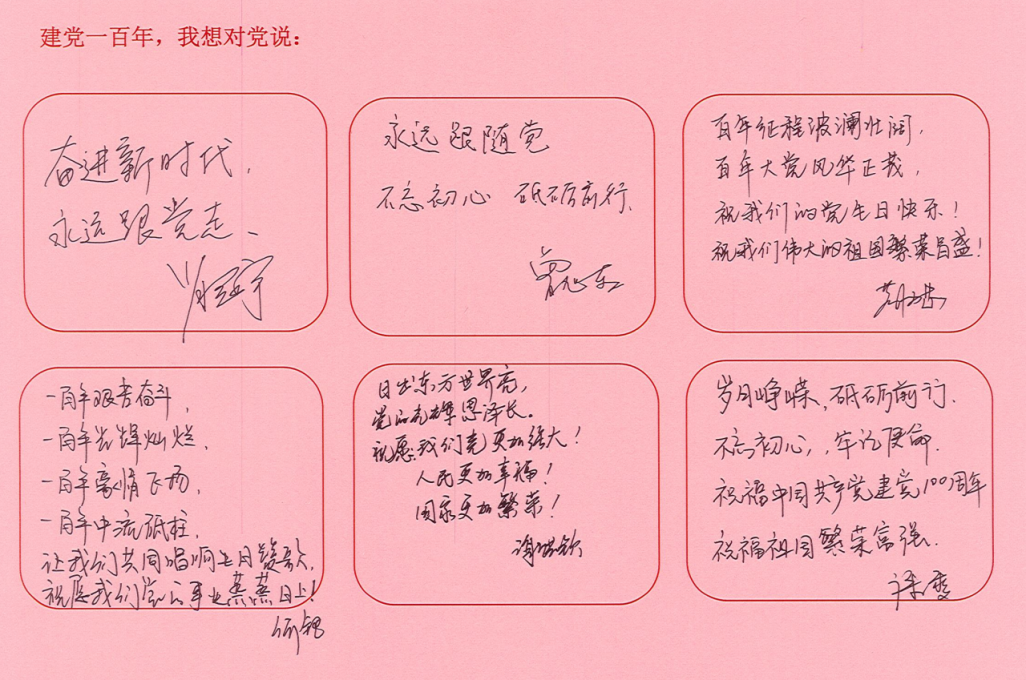 建党一百年，我想对党说：
奋进新时代，
永远跟党走、
永远跟随党
不忘初心 砥砺前行.
百年征程波澜壮阔，
百年大党风华正茂，
祝我们的党生日快乐！
祝我们伟大的祖国繁荣昌盛！
一百年艰苦奋斗，
一百年光辉灿烂，
一百年豪情飞扬，
一百年中流砥柱，
让我们共同唱响七月颂歌，
祝愿我们党的事业蒸蒸日上！
日出东方世界亮，
党的光辉恩泽长。
祝愿我们党更加强大！
人民更加幸福！
国家更加繁荣！
岁月峥嵘，砥砺前行.
不忘初心，牢记使命.
祝福中国共产党建党100周年
祝福祖国繁荣富强.